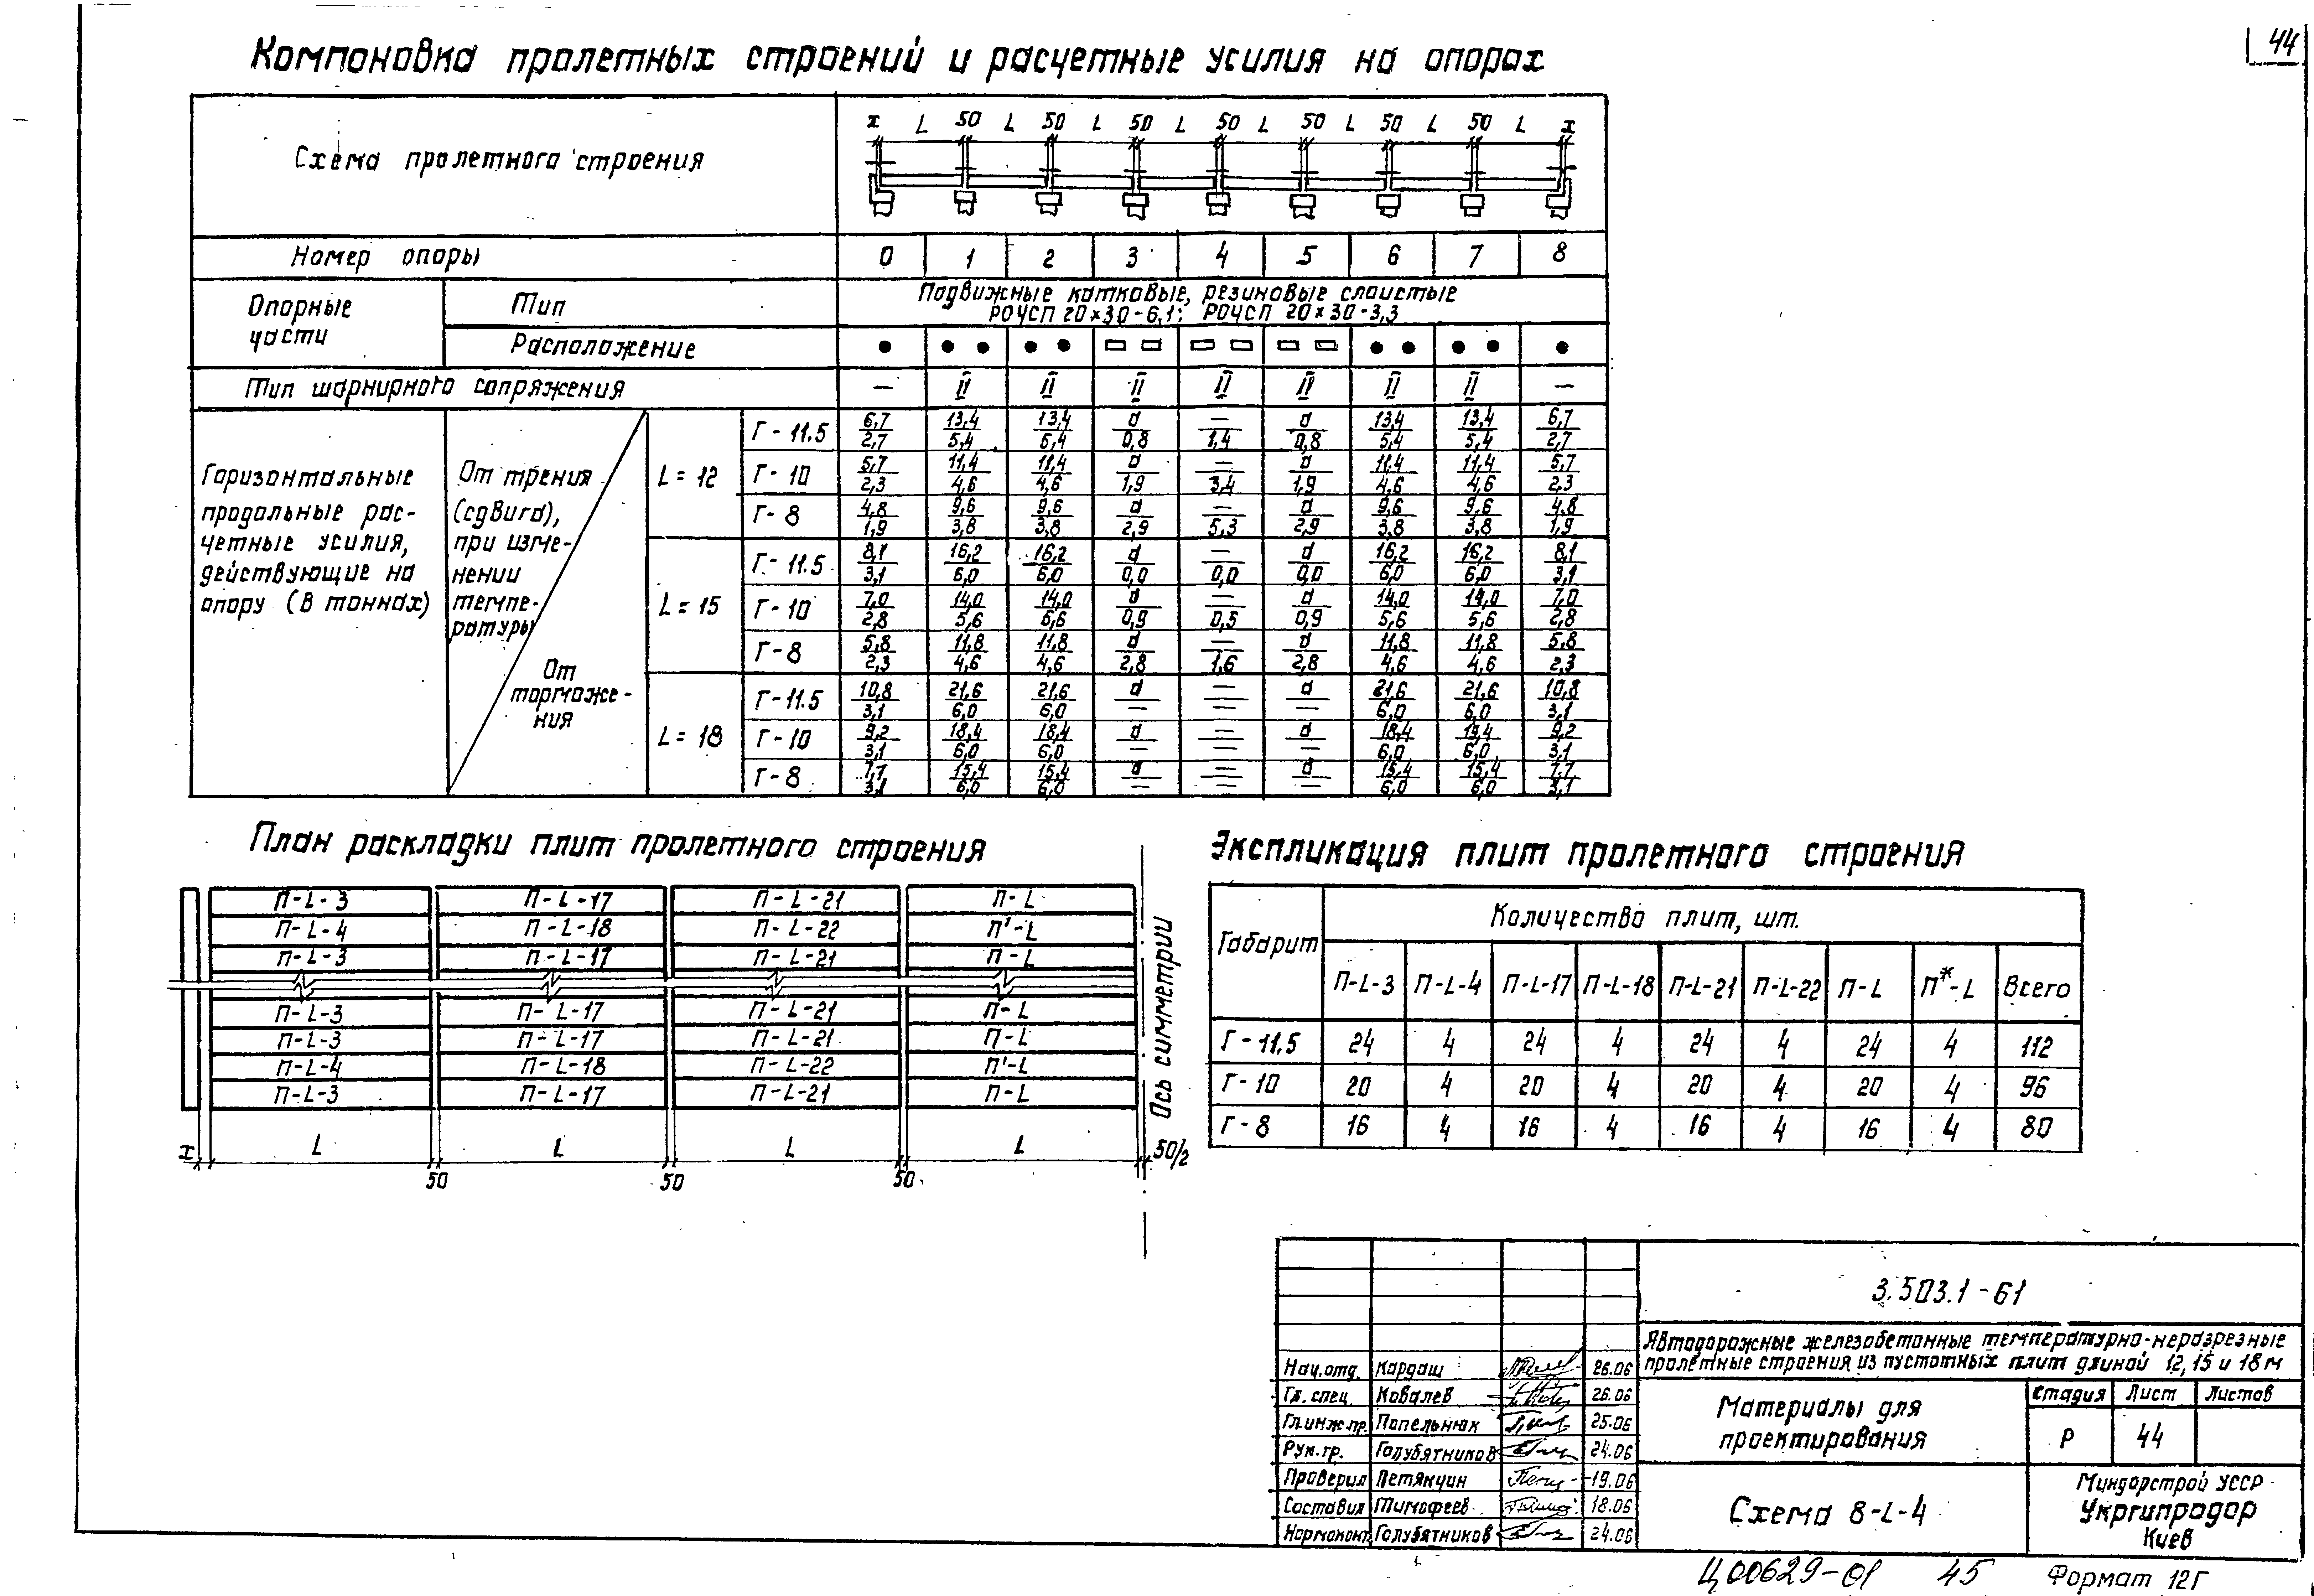 44
Компоновка пролетных строений и расчетные усилия на опорах
Схема пролетного строения
x L 50 L 50 L 50 L 50 L 50 L 50 L 50 L x
Номер опоры 0 1 2 3 4 5 6 7 8
Опорные части
Тип
Подвижные катковые, резиновые слоистые
РОЧСП 20×30-6,1; РОЧСП 20×30-3,3
Расположение
Тип шарнирного сопряжения — II II II II II II II —
Горизонтальные
продольные рас-
четные усилия,
действующие на
опору (в тоннах)
От трения
(сдвига),
при изме-
нении
темпе-
ратуры
От
торможе-
ния
L = 12
Г-11.5 6,7 13,4 13,4 d — d 13,4 13,4 6,7
2,7 5,4 5,4 0,8 1,4 0,8 5,4 5,4 2,7
Г-10 5,7 11,4 11,4 d — d 11,4 11,4 5,7
2,3 4,6 4,6 1,9 3,4 1,9 4,6 4,6 2,3
Г-8 4,8 9,6 9,6 d — d 9,6 9,6 4,8
1,9 3,8 3,8 2,9 5,3 2,9 3,8 3,8 1,9
L = 15
Г-11.5 8,1 16,2 16,2 d — d 16,2 16,2 8,1
3,1 6,0 6,0 0,0 0,0 0,0 6,0 6,0 3,1
Г-10 7,0 14,0 14,0 d — d 14,0 14,0 7,0
2,8 5,6 5,6 0,9 0,5 0,9 5,6 5,6 2,8
Г-8 5,8 11,8 11,8 d — d 11,8 11,8 5,8
2,3 4,6 4,6 2,8 1,6 2,8 4,6 4,6 2,3
L = 18
Г-11.5 10,8 21,6 21,6 d — d 21,6 21,6 10,8
3,1 6,0 6,0 — — — 6,0 6,0 3,1
Г-10 9,2 18,4 18,4 d — d 18,4 19,4 9,2
3,1 6,0 6,0 — — — 6,0 6,0 3,1
Г-8 7,7 15,4 15,4 d — d 15,4 15,4 7,7
3,1 6,0 6,0 — — — 6,0 6,0 3,1
План раскладки плит пролетного строения
П-L-3 П-L-17 П-L-21 П-L
П-L-4 П-L-18 П-L-22 П'-L
П-L-3 П-L-17 П-L-21 П-L
П-L-3 П-L-17 П-L-21 П-L
П-L-3 П-L-17 П-L-21 П-L
П-L-4 П-L-18 П-L-22 П'-L
П-L-3 П-L-17 П-L-21 П-L
x L L L L 50/2
50 50 50
Ось симметрии
Экспликация плит пролетного строения
Габарит
Количество плит, шт.
П-L-3 П-L-4 П-L-17 П-L-18 П-L-21 П-L-22 П-L П*-L Всего
Г-11,5 24 4 24 4 24 4 24 4 112
Г-10 20 4 20 4 20 4 20 4 96
Г-8 16 4 16 4 16 4 16 4 80
3.503.1-61
Автодорожные железобетонные температурно-неразрезные
пролетные строения из пустотных плит длиной 12, 15 и 18 м
Нач.отд. Кардаш 26.06
Гл. спец. Ковалев 26.06
Гл.инж.пр. Папельнюк 25.06
Рук.гр. Голубятников 24.06
Проверил Петянчин 19.06
Составил Тимофеев 18.06
Нормоконт. Голубятников 24.06
Материалы для
проектирования
Стадия Лист Листов
Р 44
Схема 8-L-4
Миндорстрой УССР
Укргипродор
Киев
Ц00629-01 45 Формат 12Г